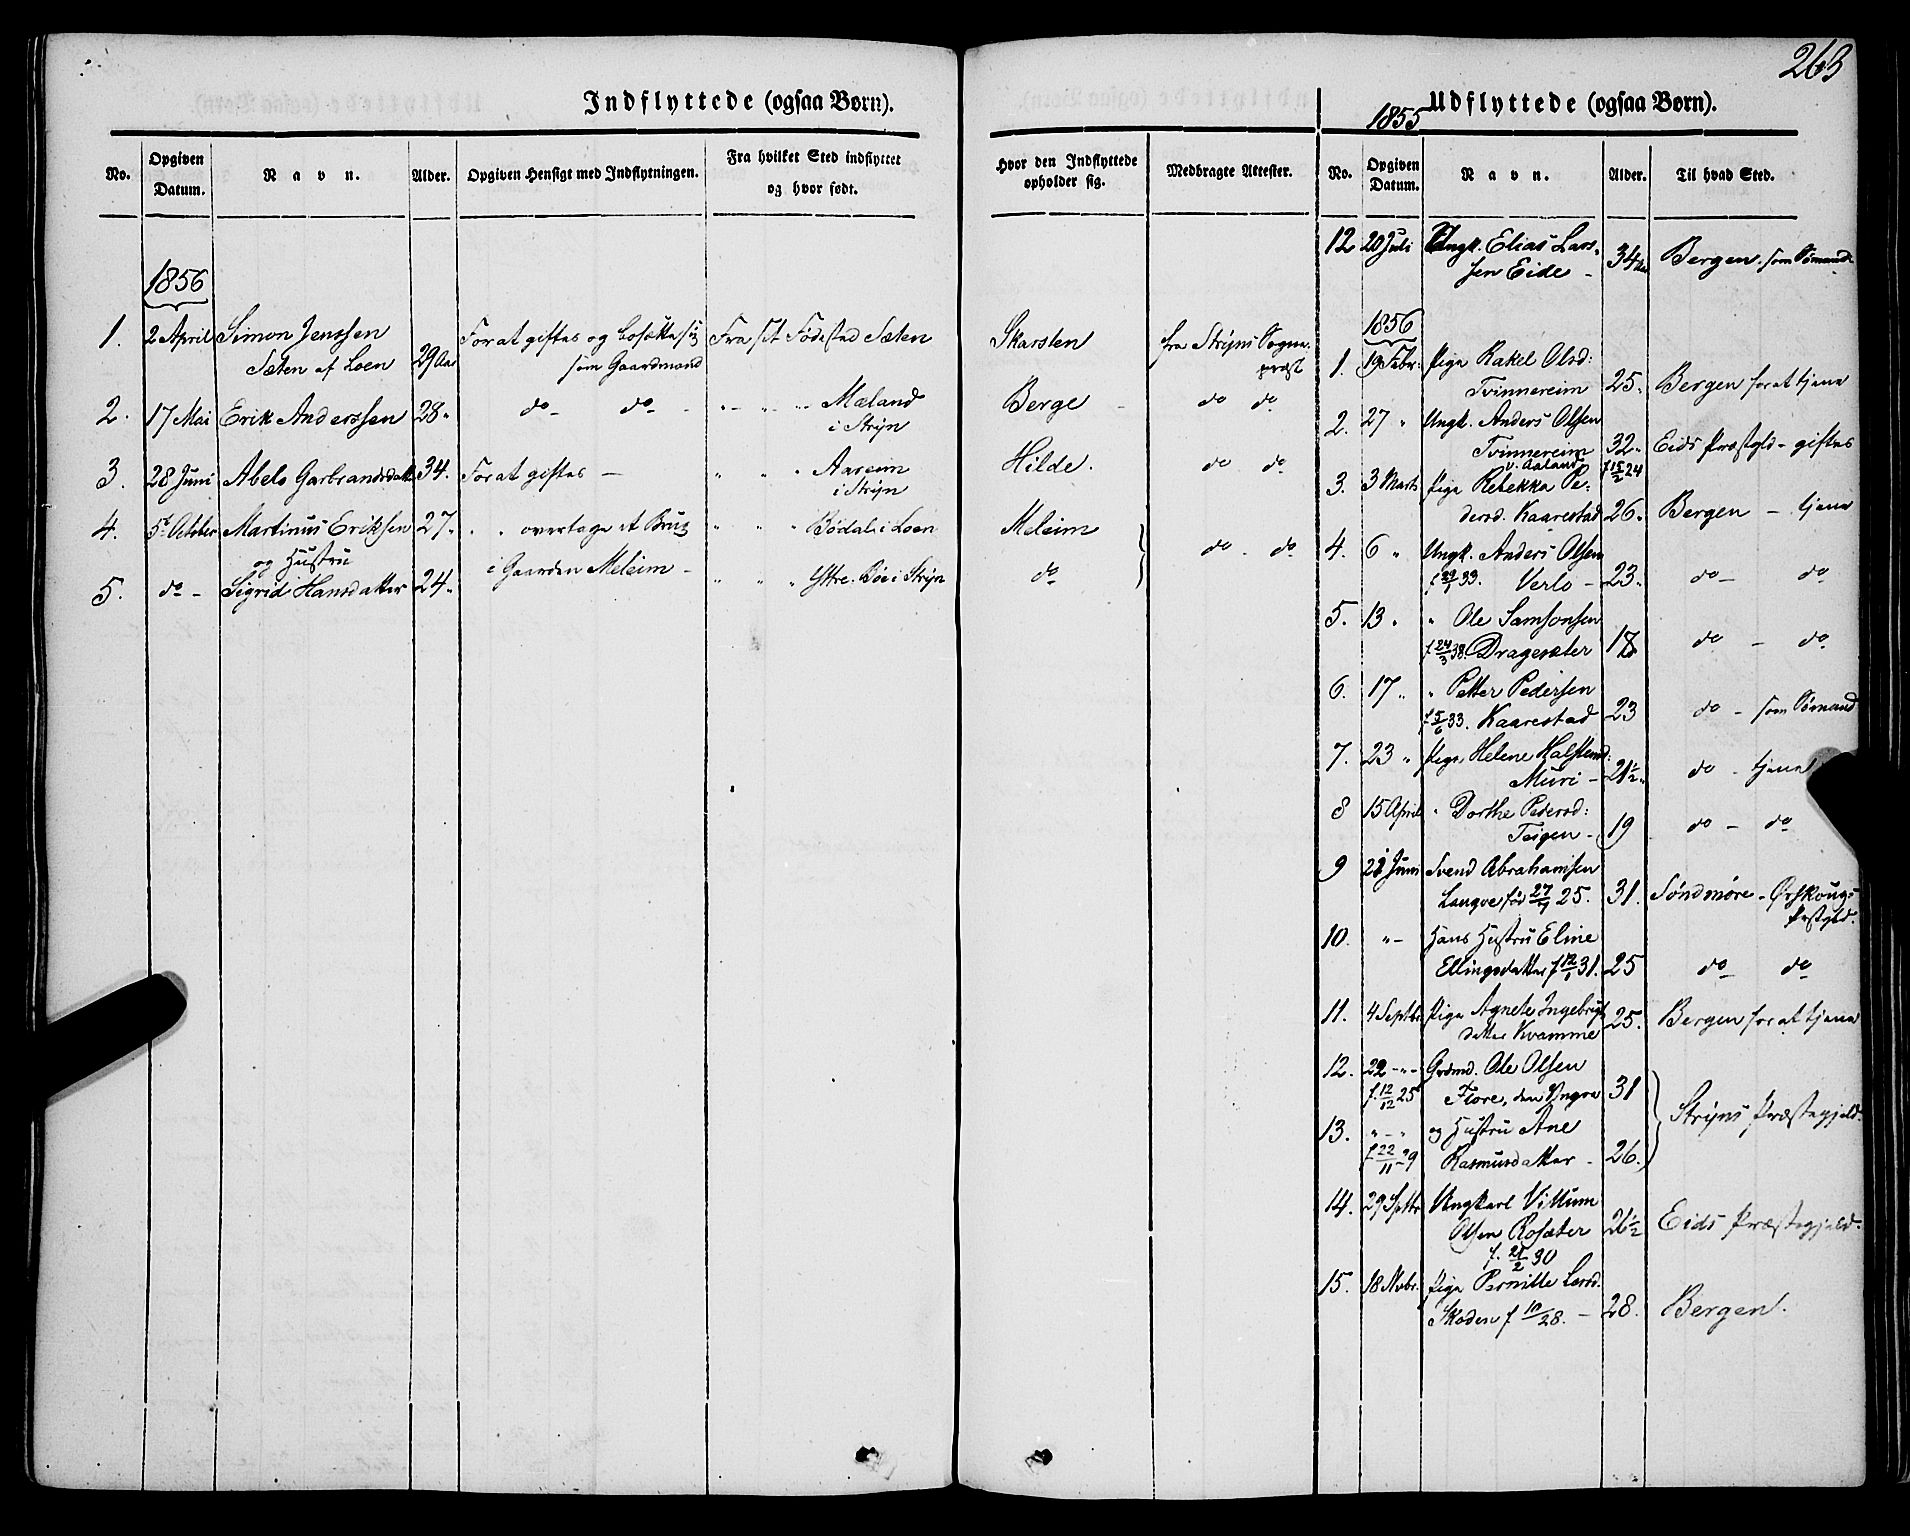 263
Indflyttede (ogsaa Børn).
No.
Opgiven Datum.
Navn.
Alder.
Opgiven Hensigt med Indflytningen.
Fra hvilket Sted indflyttet og hvor født.
Hvor den Indflyttede opholder sig.
Medbragte Attester.
1856
1. 2 April Simon Jenssen For at giftes og bosætte sig Fra sit Fødested Sæten Skarsten fra Stryns Sogne-
Sæten af Loen 29 Aar som Gaardmand præst
2. 17 Mai Erik Anderssen 28 " do - do - " - " - " - Mæland Berge - do do
i Stryn
3. 28 Juni Abelo Garbrandsdatter 34. For at giftes - " " " Aareim Hilde. do do
i Stryn
4. 5t October Martinus Eriksen 27 " " " overtage et Brug " " " Bødal i Loen Meleim do - do
og Hustru i Gaarden Meleim -
5. do - Sigrid Hansdatter 24 " " " " Yttre-Bøe i Stryn do
Udflyttede (ogsaa Børn).
1855
No.
Opgiven Datum.
Navn.
Alder.
Til hvad Sted.
12 20 Juli Ungk. Elias Lars-
sen Eide - 34 Aar Bergen som Sømand
1856
1. 19 Febr: Pige Rakel Olsd:
Tvinnereim 25 " Bergen for at tjene
2. 27 " Ungk. Anders Olsen
Tvinnereim 32 " Eids Præstgld - giftes
v. Aaland f 15/2 24
3. 3 Marts Pige Rebekka Pe-
dersd. Kaarestad 26 " Bergen - tjene
4. 6 " Ungk. Anders Olsen
33. Verlo - 23 " do - do
5. 13 " " Ole Samsonsen
f 24/3 38. Dragesæter 18 do - do
6. 17 " " Petter Pedersen
f 5/6 33. Kaarestad 23 do - som Sømand
7. 23 " Pige Helene Halstensd:
Muri - 21½ " do - tjene
8 15 April " Dorthe Pedersd:
Teigen - 19 do - do
9 21 Juni Svend Abrahamsen
Langve fød 27/9 25. 31. Søndmøre - Ørskougs
Prstgld.
10. " - Hans Hustru Eline
Ellingsdatter f 12/1 31. 25 do do
11. 4 Septbr Pige Agnete Ingebrigts
datter Kvamme 25. Bergen for at tjene
12. 22 - " - Grdmd. Ole Olsen
f. 12/12 25 Flore, den Yngre 31 Stryns Præstegjeld.
13. " - " og Hustru Ane
f. 22/11 29 Rasmusdatter - 26.
14. 29 Septbr Ungkarl Villum
Olsen Rosæter 26½ Eids Præstegjeld.
f. 21/2 30
15. 18 Novbr. Pige Pernille Larsd.
Skaden f 10/28. - 28. Bergen.